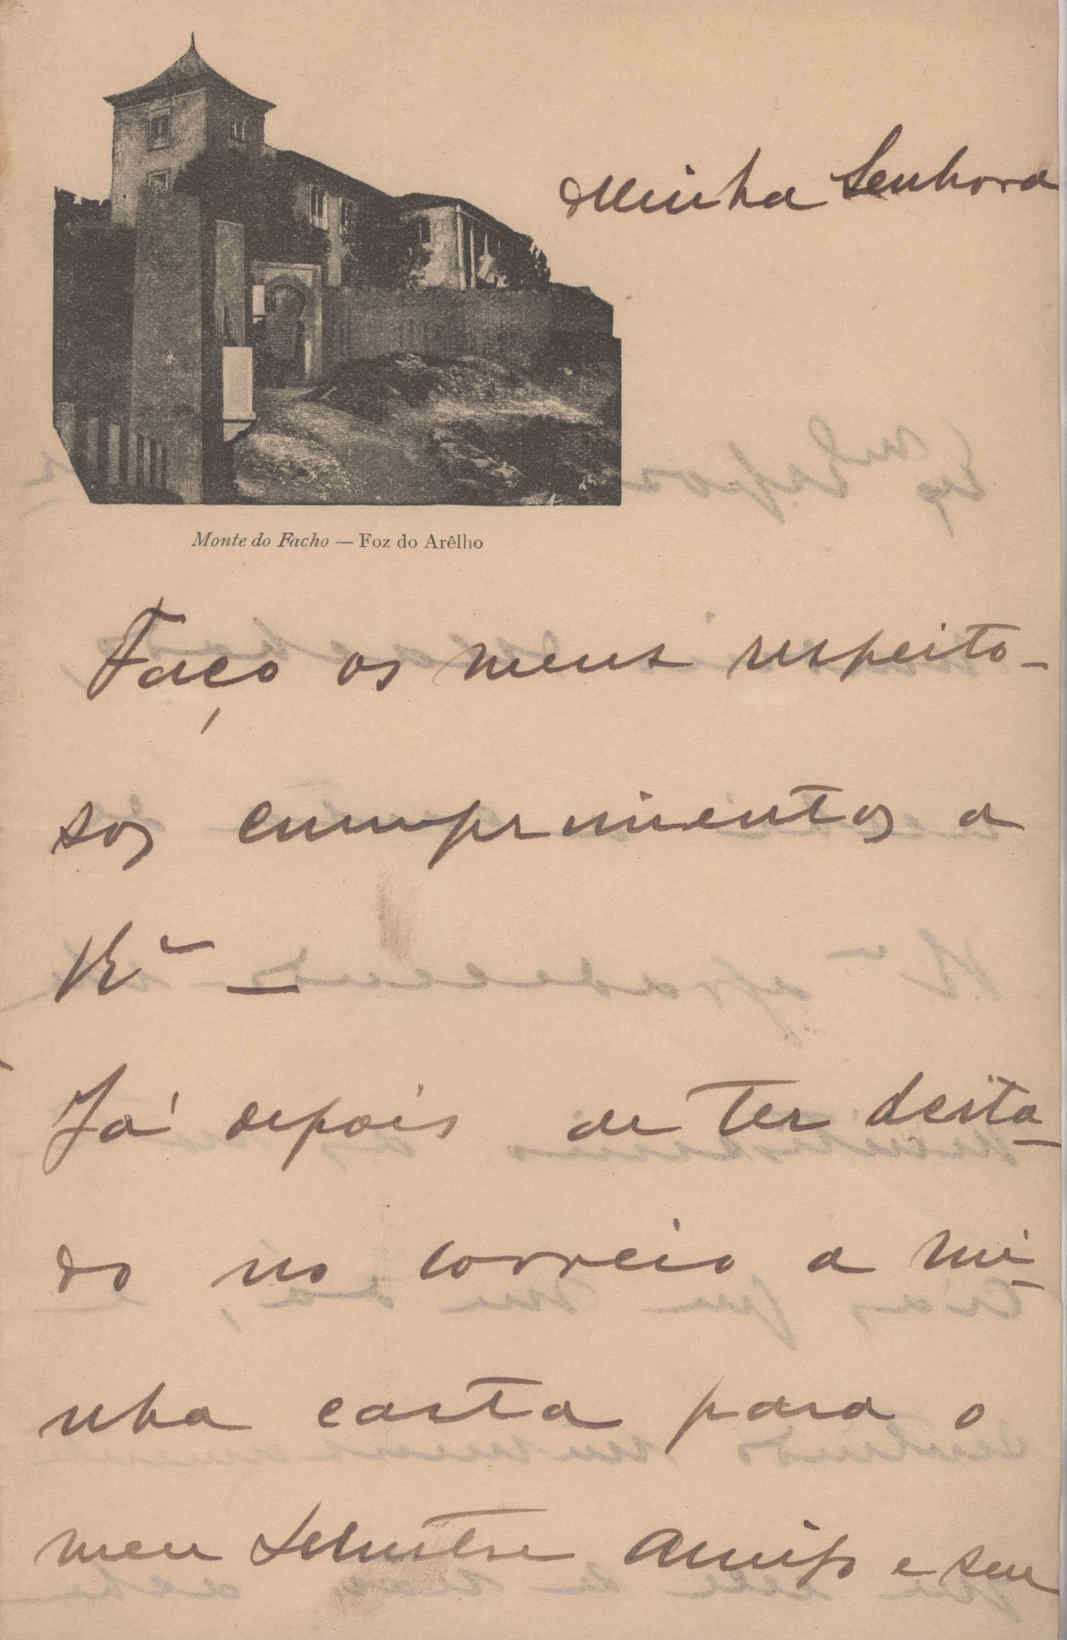 Minha Senhora
Monte do Facho — Foz do Arêlho
Faço os meus respeito-
sos cumprimentos a
V. Ex.ª —
Já depois de ter deita-
do no correio a mi-
nha carta para o
meu Illustre Amigo e seu